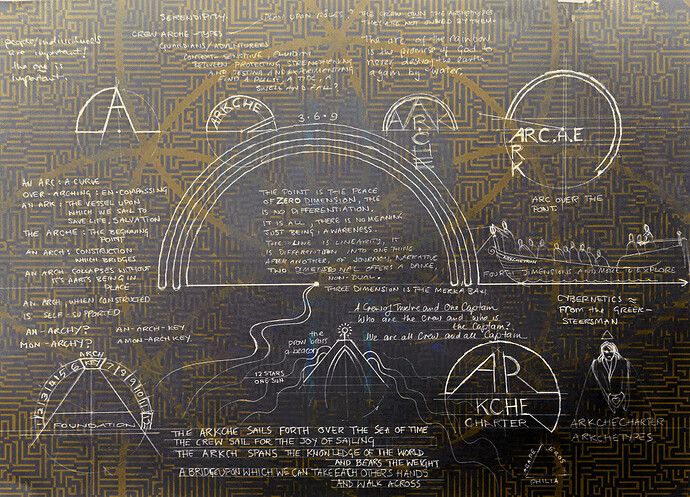 SERENDIPITY.
THEY ARE NOT OWNED BY THEM.
CREW ARCHE-TYPES
GUARDIANS/ADVENTURERS
CONTEXT-SENSITIVE, FLUIDITY
BETWEEN PROTECTING, STRENGTHENING
AND TESTING AND EXPERIMENTING
FIND A PULSE, A TIDE,
SWELLS AND FALL?
people/individuals
are important!
The one is
important.
The arc of the rainbow
is the promise of God to
never destroy the earth
again by water.
A
ARKCHE
ARK
ARC.A.E
R
K
3·6·9
AN ARC: A CURVE
OVER-ARCHING: EN-COMPASSING
AN ARK: THE VESSEL UPON
WHICH WE SAIL TO
SAVE LIFE, SALVATION
THE ARCHE: THE BEGINNING
POINT
AN ARCH'S CONSTRUCTION
WHICH BRIDGES
AN ARCH COLLAPSES WITHOUT
IT'S PARTS BEING IN
PLACE
AN ARCH, WHEN CONSTRUCTED
IS SELF-SUPPORTED
AN-ARCHY? AN-ARCH-KEY
MON-ARCHY? AMON-ARCH KEY
THE POINT IS THE PLACE
OF ZERO DIMENSION, THE
IS NO DIFFERENTIATION,
IT IS ALL, THERE IS NO MEANING
JUST BEING, AWARENESS.
THE LINE IS LINEARITY, IT
IS DIFFERENTIATION INTO ONE THING
AFTER ANOTHER, OF JOURNEY, NARRATIVE
TWO DIMENSIONAL OFFERS A DANCE,
NON-DUAL.
THREE DIMENSION IS THE MERKABAH
ARC OVER THE
POINT.
FOURTH DIMENSIONS AND MORE TO EXPLORE
CYBERNETICS ≈
FROM THE GREEK-
STEERSMAN
A Crew of Twelve and One Captain
Who are the Crew and who is
the Captain?
We are all Crew and all Captain
the
prow bears
a beacon
12 STARS
ONE SUN
ARCH
KEY
FOUNDATION
AR
KCHE
CHARTER
ARKCHECHARTER
ARKCHETYPES
THE ARKCHE SAILS FORTH OVER THE SEA OF TIME
THE CREW SAIL FOR THE JOY OF SAILING
THE ARKCH SPANS THE KNOWLEDGE OF THE WORLD
AND BEARS THE WEIGHT
A BRIDGE UPON WHICH WE CAN TAKE EACH OTHERS HANDS
AND WALK ACROSS
AGAPE
EROS
PHILIA